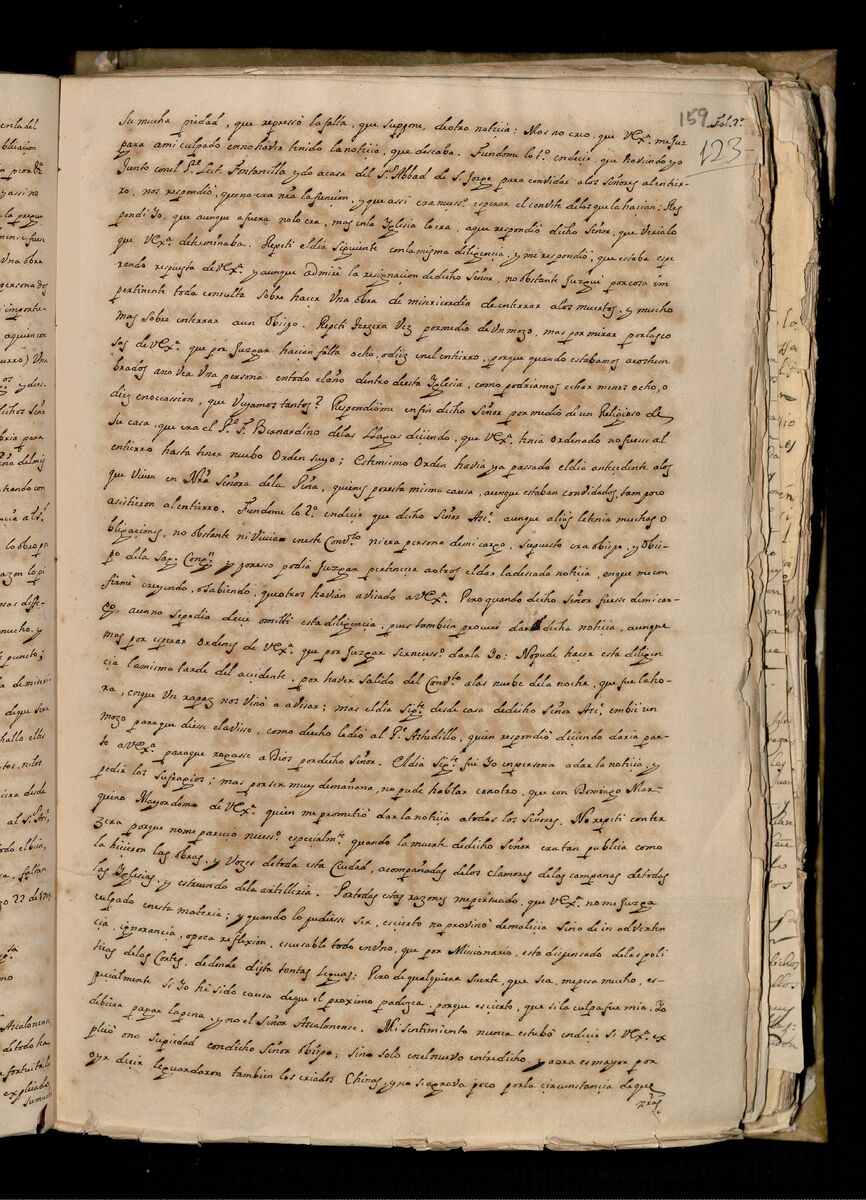 159 Fol. 2º
123
Su mucha piedad, que represó la falta, que suppone, de otra noticia: Mas no creo, que V Exª. me juz
para a mi culpado en no haver tenido la noticia, que deseaba. Fundome lo 1º. en decir, que haviendo yo
Junto con el Pe. Lect. Fontanilla ydo a casa del Sr. Abbad de S. Jorge para convidar a los Señores al entier-
ro, nos respondió, que no era nra la función, y que assi era necessº. esperar el convite de los que la hacian: Res
pondi Yo, que aunque a fuera no lo era, mas en la Yglesia lo era, a que respondió dicho Señor, que veria lo
que V Exª. determinaba. Repeti el dia siguiente con la misma diligencia, y me respondió, que estaba espe
rando respuesta de V Exª. y aunque admiré la resignacion de dicho Señor, no obstante juzgué por cosa im
pertinente toda consulta sobre hacer Una obra de misericordia de enterrar a los muertos, y mucho
mas sobre enterrar a un Obispo. Repeti Terzera Vez por medio de Un mozo, mas por mirar por las co
sas de V Exª. que por juzgar hacian falta ocho, o diez en el entierro, porque quando estabamos acostum
brados a no ver Una persona en todo el año dentro de esta Yglesia, como podriamos echar menos ocho, o
diez en occassion, que Veyamos tantos? Respondiome en fin dicho Señor por medio de un Religioso de
Su casa, que era el Pe. F. Bernardino de las Llagas diciendo, que V Exª. tenia Ordenado no fuesse al
entierro hasta tener nuebo Orden suyo; Este mismo Orden havia ya passado el dia antecedente a los
que Viven en Nrã Señora de la Peña, quienes por esta misma causa, aunque estaban convidados, tampoco
asistieron al entierro. Fundome lo 2º. en decir que dicho Señor Asc. aunque a Dios le tenia muchos o
bligaciones, no obstante ni Vivia en este Convto ni era persona de mi cargo, supuesto era obispo, y Obis-
po de la Sag. Congn. y por esso podia juzgar pertenecer a otros el dar la deseada noticia, en que me con
firmé creyendo, o sabiendo, que otros havian avisado a V Exª. Pero quando dicho Señor fuesse de mi car-
go, aun no se podia decir omitti esta diligencia, pues tambien procuré dar dicha noticia, aunque
mas por esperar Ordenes de V Exª. que por juzgar ser necessº. darla Yo: No pude hacer esta diligen
cia la misma tarde del accidente, por haver salido del Convto a las nuebe de la noche, que fue la ho-
ra, en que Un rapaz nos vino a avisar; mas el dia sigte. desde casa de dicho Señor Asc. embié un
mozo para que diesse el avisso, como de echo le dió al Pe. Astudillo, quien respondió diciendo daria par-
te a V Exª para que rogasse a Dios por dicho Señor. El dia sigte. fui Yo en persona a dar la noticia, y
pedir los sufragios; mas por ser muy de mañana, no pude hablar con otro, que con Domingo Mar-
quino Mayordomo de V Exª. quien me prometió dar la noticia a todos los Señores. No repeti con ter
zera porque no me pareció necessº. especialmte. quando la muerte de dicho Señor era tan publica como
la hicieron las obras, y Vozes de toda esta Ciudad, acompañadas de los clamores de las campanas de todas
las Yglesias, y estruendo de la artilleria. Por todas estas razones me persuado, que V Exª. no me juzga
culpado en esta materia; y quando lo pudiesse ser, es cierto no provinó de malicia sino de inadverten
cia, ignorancia, o poca reflexion, escusable todo en Uno, que por Missionario, esta dispensado de las poli
ticas de las Cortes, de donde dista tantas leguas: Pero de qualquiera suerte, que sea, me pesa mucho, es-
pecialmente si Yo hé sido causa de que el proximo padezca, porque es cierto, que si la culpa fue mia, Yo
debiera pagar la pena, y no el Señor Ascalonense. Mi sentimiento nunca estubó en decir si V Exª. ex
plicó o no su piedad con dicho Señor obispo; sino solo en el nuevo entredicho, y aora es mayor por
oyr decir le guardaron tambien los criados Chinas, y no se agrava poco por la circunstancia de que
nrãs